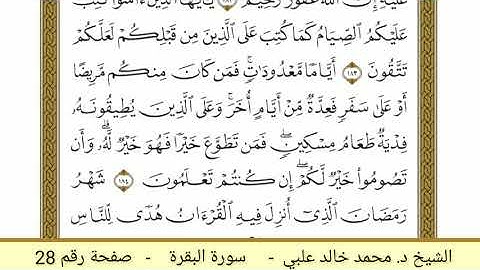 عَلَيْهِ إِنَّ ٱللَّهَ غَفُورٌ رَّحِيمٌ ١٨٢ يَٰٓأَيُّهَا ٱلَّذِينَ ءَامَنُوا۟ كُتِبَ
عَلَيْكُمُ ٱلصِّيَامُ كَمَا كُتِبَ عَلَى ٱلَّذِينَ مِن قَبْلِكُمْ لَعَلَّكُمْ
تَتَّقُونَ ١٨٣ أَيَّامًا مَّعْدُودَٰتٍۚ فَمَن كَانَ مِنكُم مَّرِيضًا
أَوْ عَلَىٰ سَفَرٍ فَعِدَّةٌ مِّنْ أَيَّامٍ أُخَرَۚ وَعَلَى ٱلَّذِينَ يُطِيقُونَهُۥ
فِدْيَةٌ طَعَامُ مِسْكِينٍۖ فَمَن تَطَوَّعَ خَيْرًا فَهُوَ خَيْرٌ لَّهُۥۚ وَأَن
تَصُومُوا۟ خَيْرٌ لَّكُمْۖ إِن كُنتُمْ تَعْلَمُونَ ١٨٤ شَهْرُ
رَمَضَانَ ٱلَّذِىٓ أُنزِلَ فِيهِ ٱلْقُرْءَانُ هُدًى لِّلنَّاسِ
الشيخ د. محمد خالد علبي - سورة البقرة - صفحة رقم 28